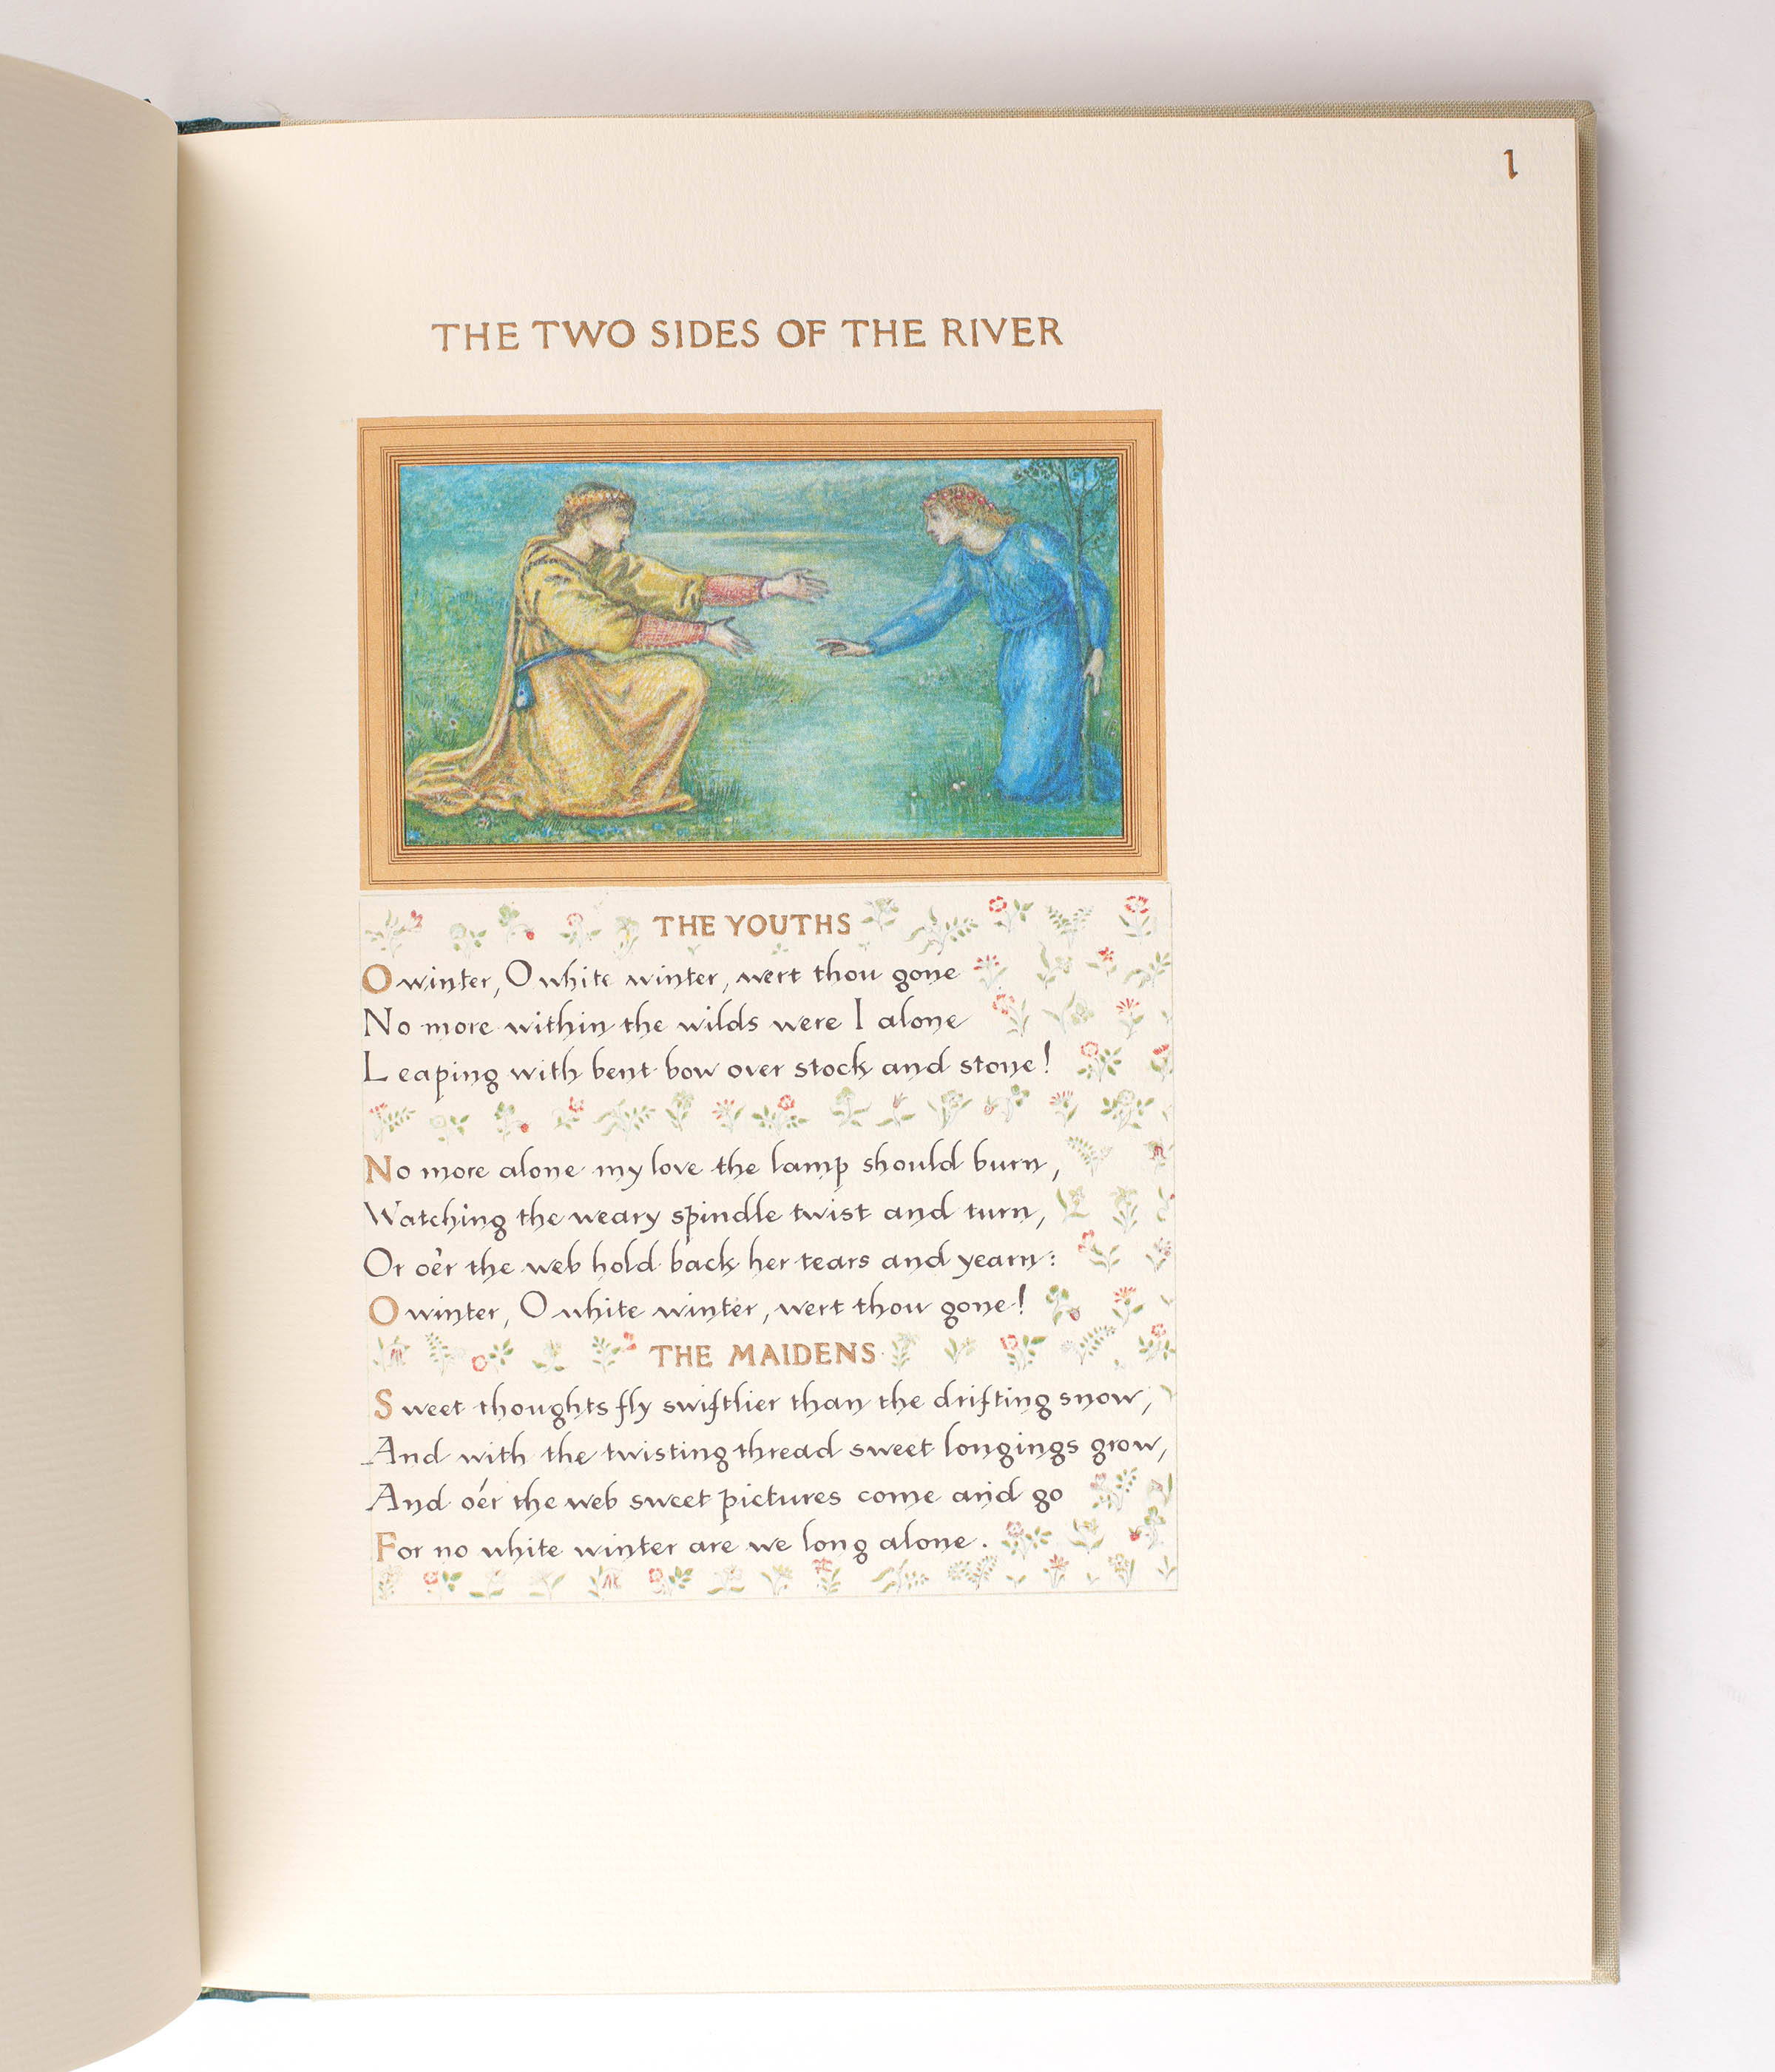 1
THE TWO SIDES OF THE RIVER
THE YOUTHS
O winter, O white winter, wert thou gone
No more within the wilds were I alone
Leaping with bent bow over stock and stone!
No more alone my love the lamp should burn,
Watching the weary spindle twist and turn,
Or o'er the web hold back her tears and yearn:
O winter, O white winter, wert thou gone!
THE MAIDENS
Sweet thoughts fly swiftlier than the drifting snow,
And with the twisting thread sweet longings grow,
And o'er the web sweet pictures come and go
For no white winter are we long alone.